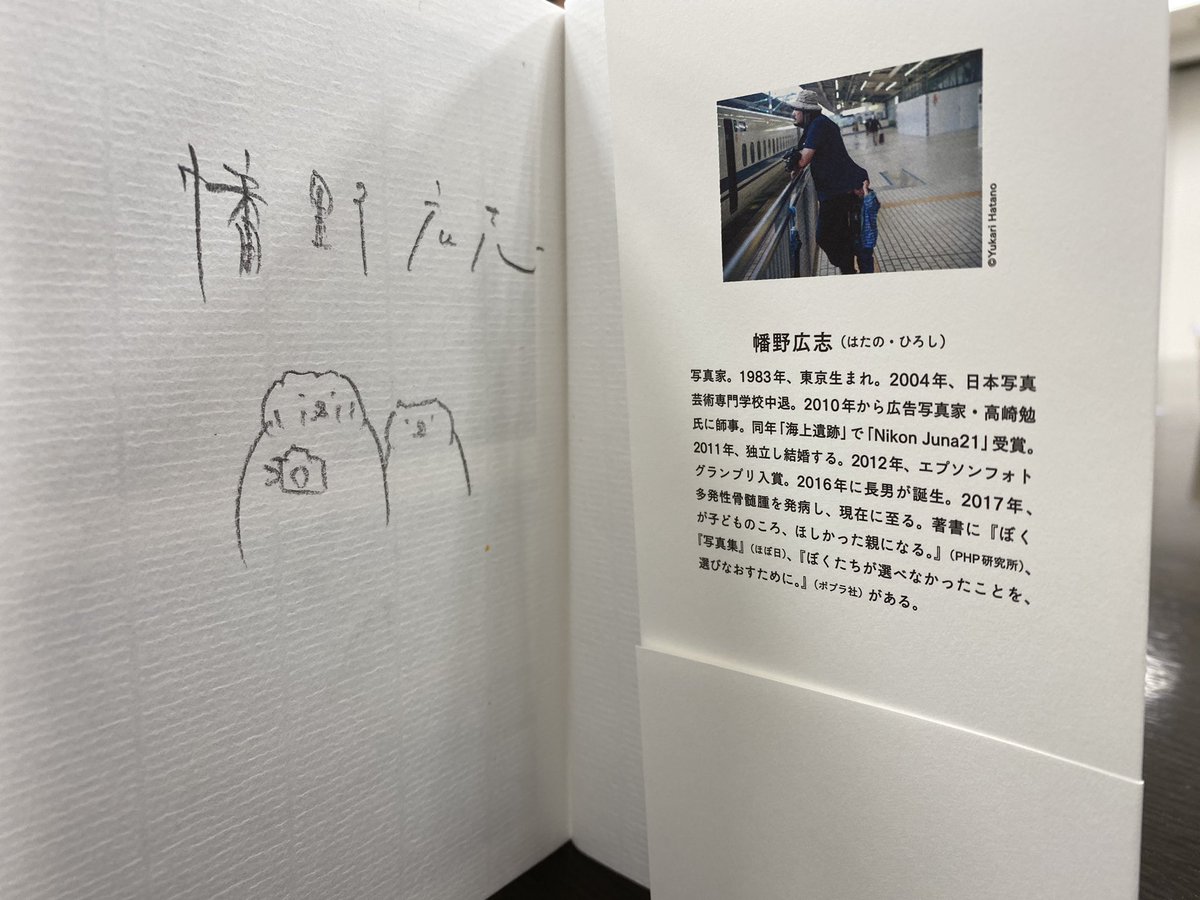 幡野広志
©Yukari Hatano
幡野広志（はたの・ひろし）
写真家。1983年、東京生まれ。2004年、日本写真
芸術専門学校中退。2010年から広告写真家・高崎勉
氏に師事。同年「海上遺跡」で「Nikon Juna21」受賞。
2011年、独立し結婚する。2012年、エプソンフォト
グランプリ入賞。2016年に長男が誕生。2017年、
多発性骨髄腫を発病し、現在に至る。著書に『ぼく
が子どものころ、ほしかった親になる。』（PHP研究所）、
『写真集』（ほぼ日）、『ぼくたちが選べなかったことを、
選びなおすために。』（ポプラ社）がある。